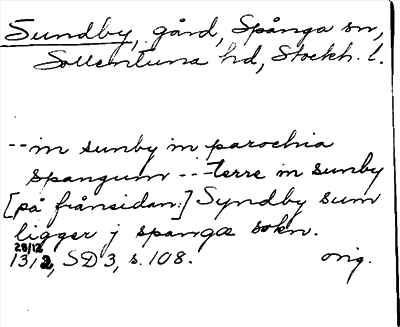 Sundby, gård, Spånga sn,
Sollentuna hd, Stockh. l.
-- in sunby in parochia
spangum --- terre in sunby
[på frånsidan:] Syndby sum
ligger j spanga sokn.
28/12
1312, SD 3, s. 108. orig.